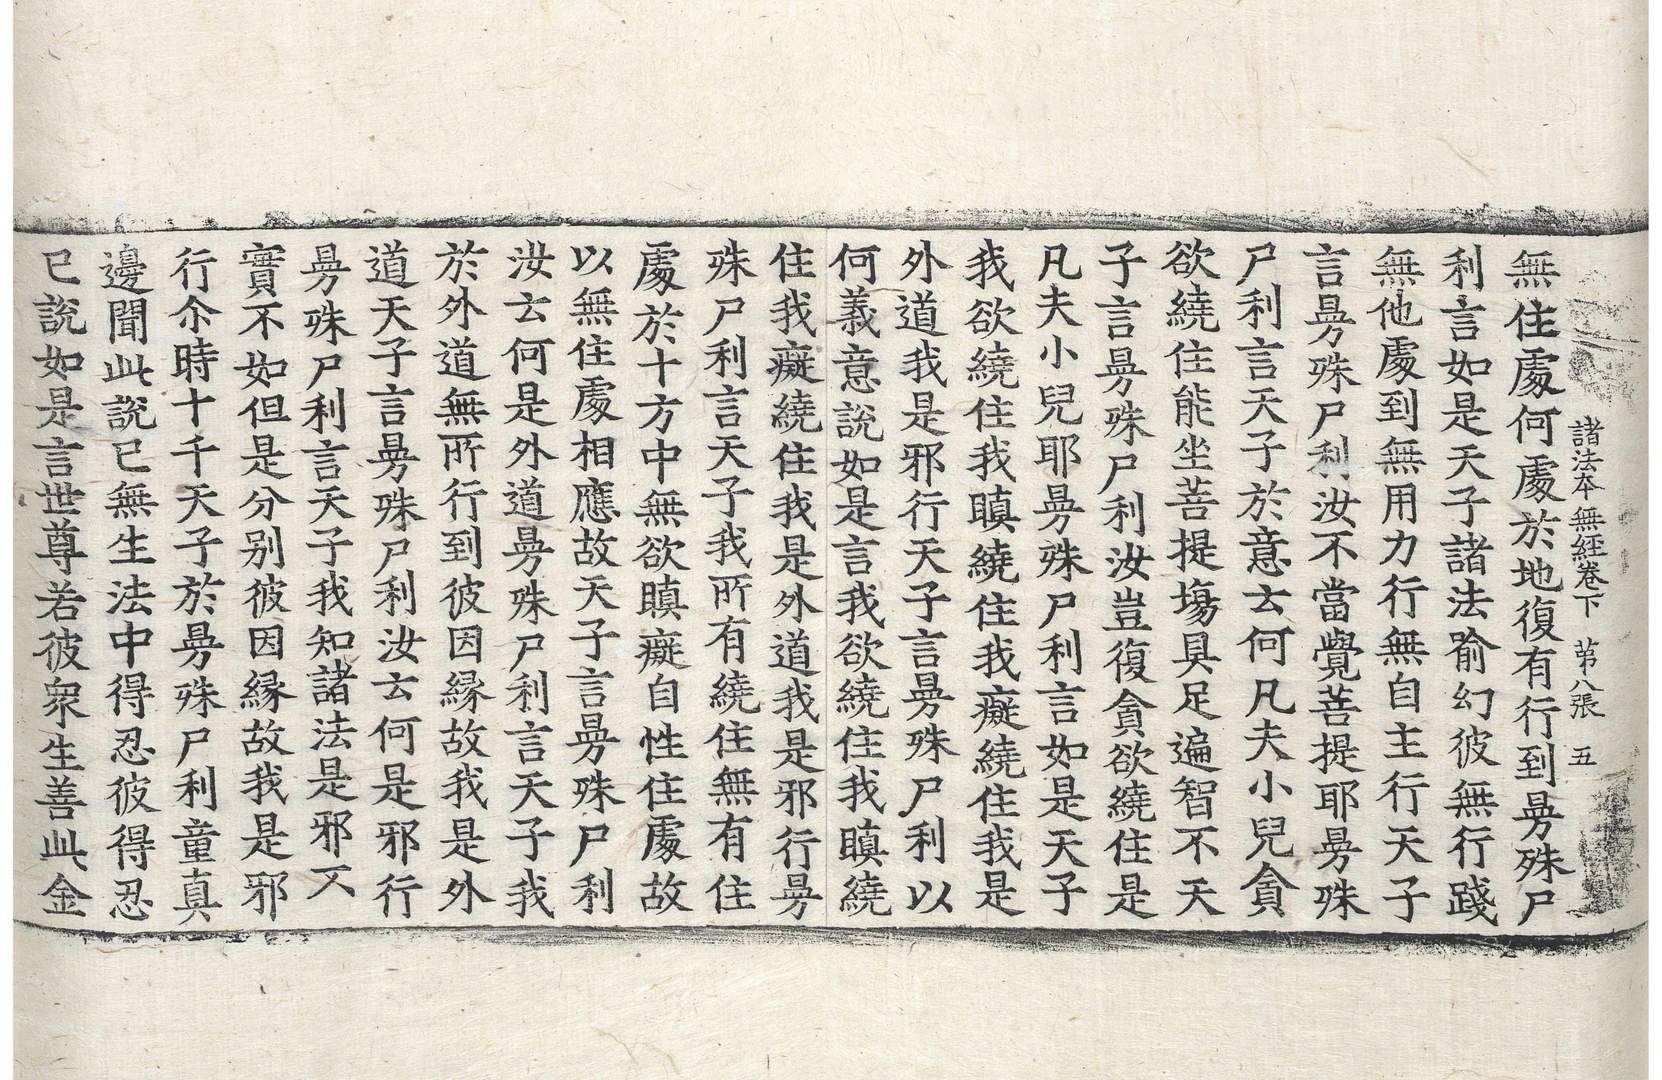 諸法本無經卷下 第八張 五
無住處何處於地復有行到曼殊尸
利言如是天子諸法喻幻彼無行踐
無他處到無用力行無自主行天子
言曼殊尸利汝不當覺菩提耶曼殊
尸利言天子於意云何凡夫小兒貪
欲繞住能坐菩提場具足遍智不天
子言曼殊尸利汝豈復貪欲繞住是
凡夫小兒耶曼殊尸利言如是天子
我欲繞住我瞋繞住我癡繞住我是
外道我是邪行天子言曼殊尸利以
何義意說如是言我欲繞住我瞋繞
住我癡繞住我是外道我是邪行曼
殊尸利言天子我所有繞住無有住
處於十方中無欲瞋癡自性住處故
以無住處相應故天子言曼殊尸利
汝云何是外道曼殊尸利言天子我
於外道無所行到彼因緣故我是外
道天子言曼殊尸利汝云何是邪行
曼殊尸利言天子我知諸法是邪不
實不如但是分別彼因緣故我是邪
行尒時十千天子於曼殊尸利童真
邊聞此說已無生法中得忍彼得忍
已說如是言世尊若彼眾生善此金